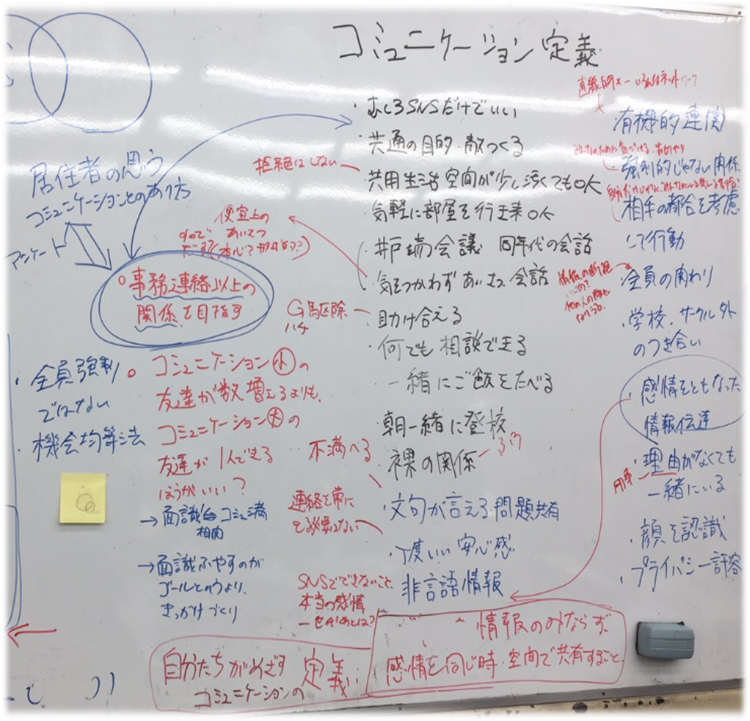 コミュニケーション定義
・むしろSNSだけでいい
・共通の目的・敵つくる
・共用生活空間が少し汚くてもOK
・気軽に部屋を行き来OK
・井戸端会議 同年代の会話
・気をつかわず あいさつ、会話
・助け合える
・何でも相談できる
・一緒にご飯をたべる
・朝一緒に登校
・裸の関係
・文句が言える・問題共有
・丁度いい安心感
・非言語情報
拒絶はしない
便宜上の
あいさつ
G駆除
ハチ
不満へる
連絡を常に
SNSでできないこと、
本当の感情
居住者の思う
コミュニケーションとのあり方
アンケート
○事務連絡以上の
関係を目指す
・全員強制
ではない
・機会均等法
○コミュニケーション小の
友達が数増えるよりも、
コミュニケーション大の
友達が1人できる
ほうがいい?
→面識らコミュ満
相関
→面識ふやすのが
ゴールというより、
きっかけづくり
有機的連関
・強制的じゃない関係
・相手の都合を考慮
して行動
・全員の関わり
・学校、サークル外
のつき合い
・感情をともなった
情報伝達
・理由がなくても
一緒にいる
用事
・顔を認識
・プライバシー許容
自分たちがめざす
コミュニケーションの
定義
情報のみならず
感情を同じ時・空間で共有すること。